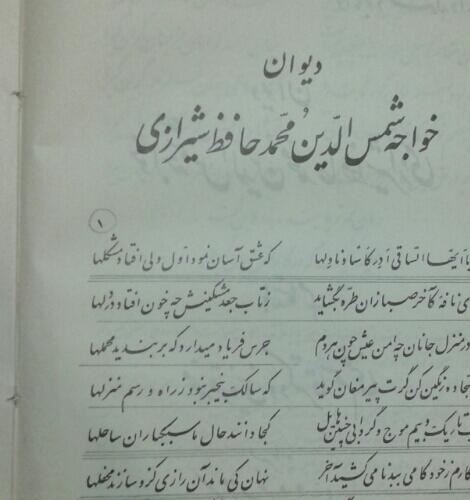 دیوان
خواجه شمس الدین محمد حافظ شیرازی
۱
یا ایها الساقی ادر کاسا و ناولها که عشق آسان نمود اول ولی افتاد مشکلها
نافهٔ کآخر صبا زان طره بگشاید ز تاب جعد مشکینش چه خون افتاد در دلها
در منزل جانان چه امن عیش چون هر دم جرس فریاد میدارد که بربندید محملها
سجاده رنگین کن گرت پیر مغان گوید که سالک بیخبر نبود ز راه و رسم منزلها
تاریک و بیم موج و گردابی چنین هایل کجا دانند حال ما سبکباران ساحلها
کارم ز خود کامی ببدنامی کشید آخر نهان کی ماند آن رازی کزو سازند محفلها